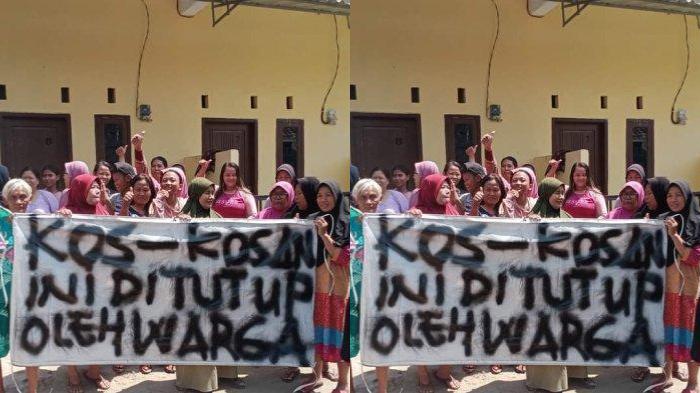 KOS-KOSAN
INI DI TUTUP
OLEH WARGA
KOS-KOSAN
INI DI TUTUP
OLEH WARGA